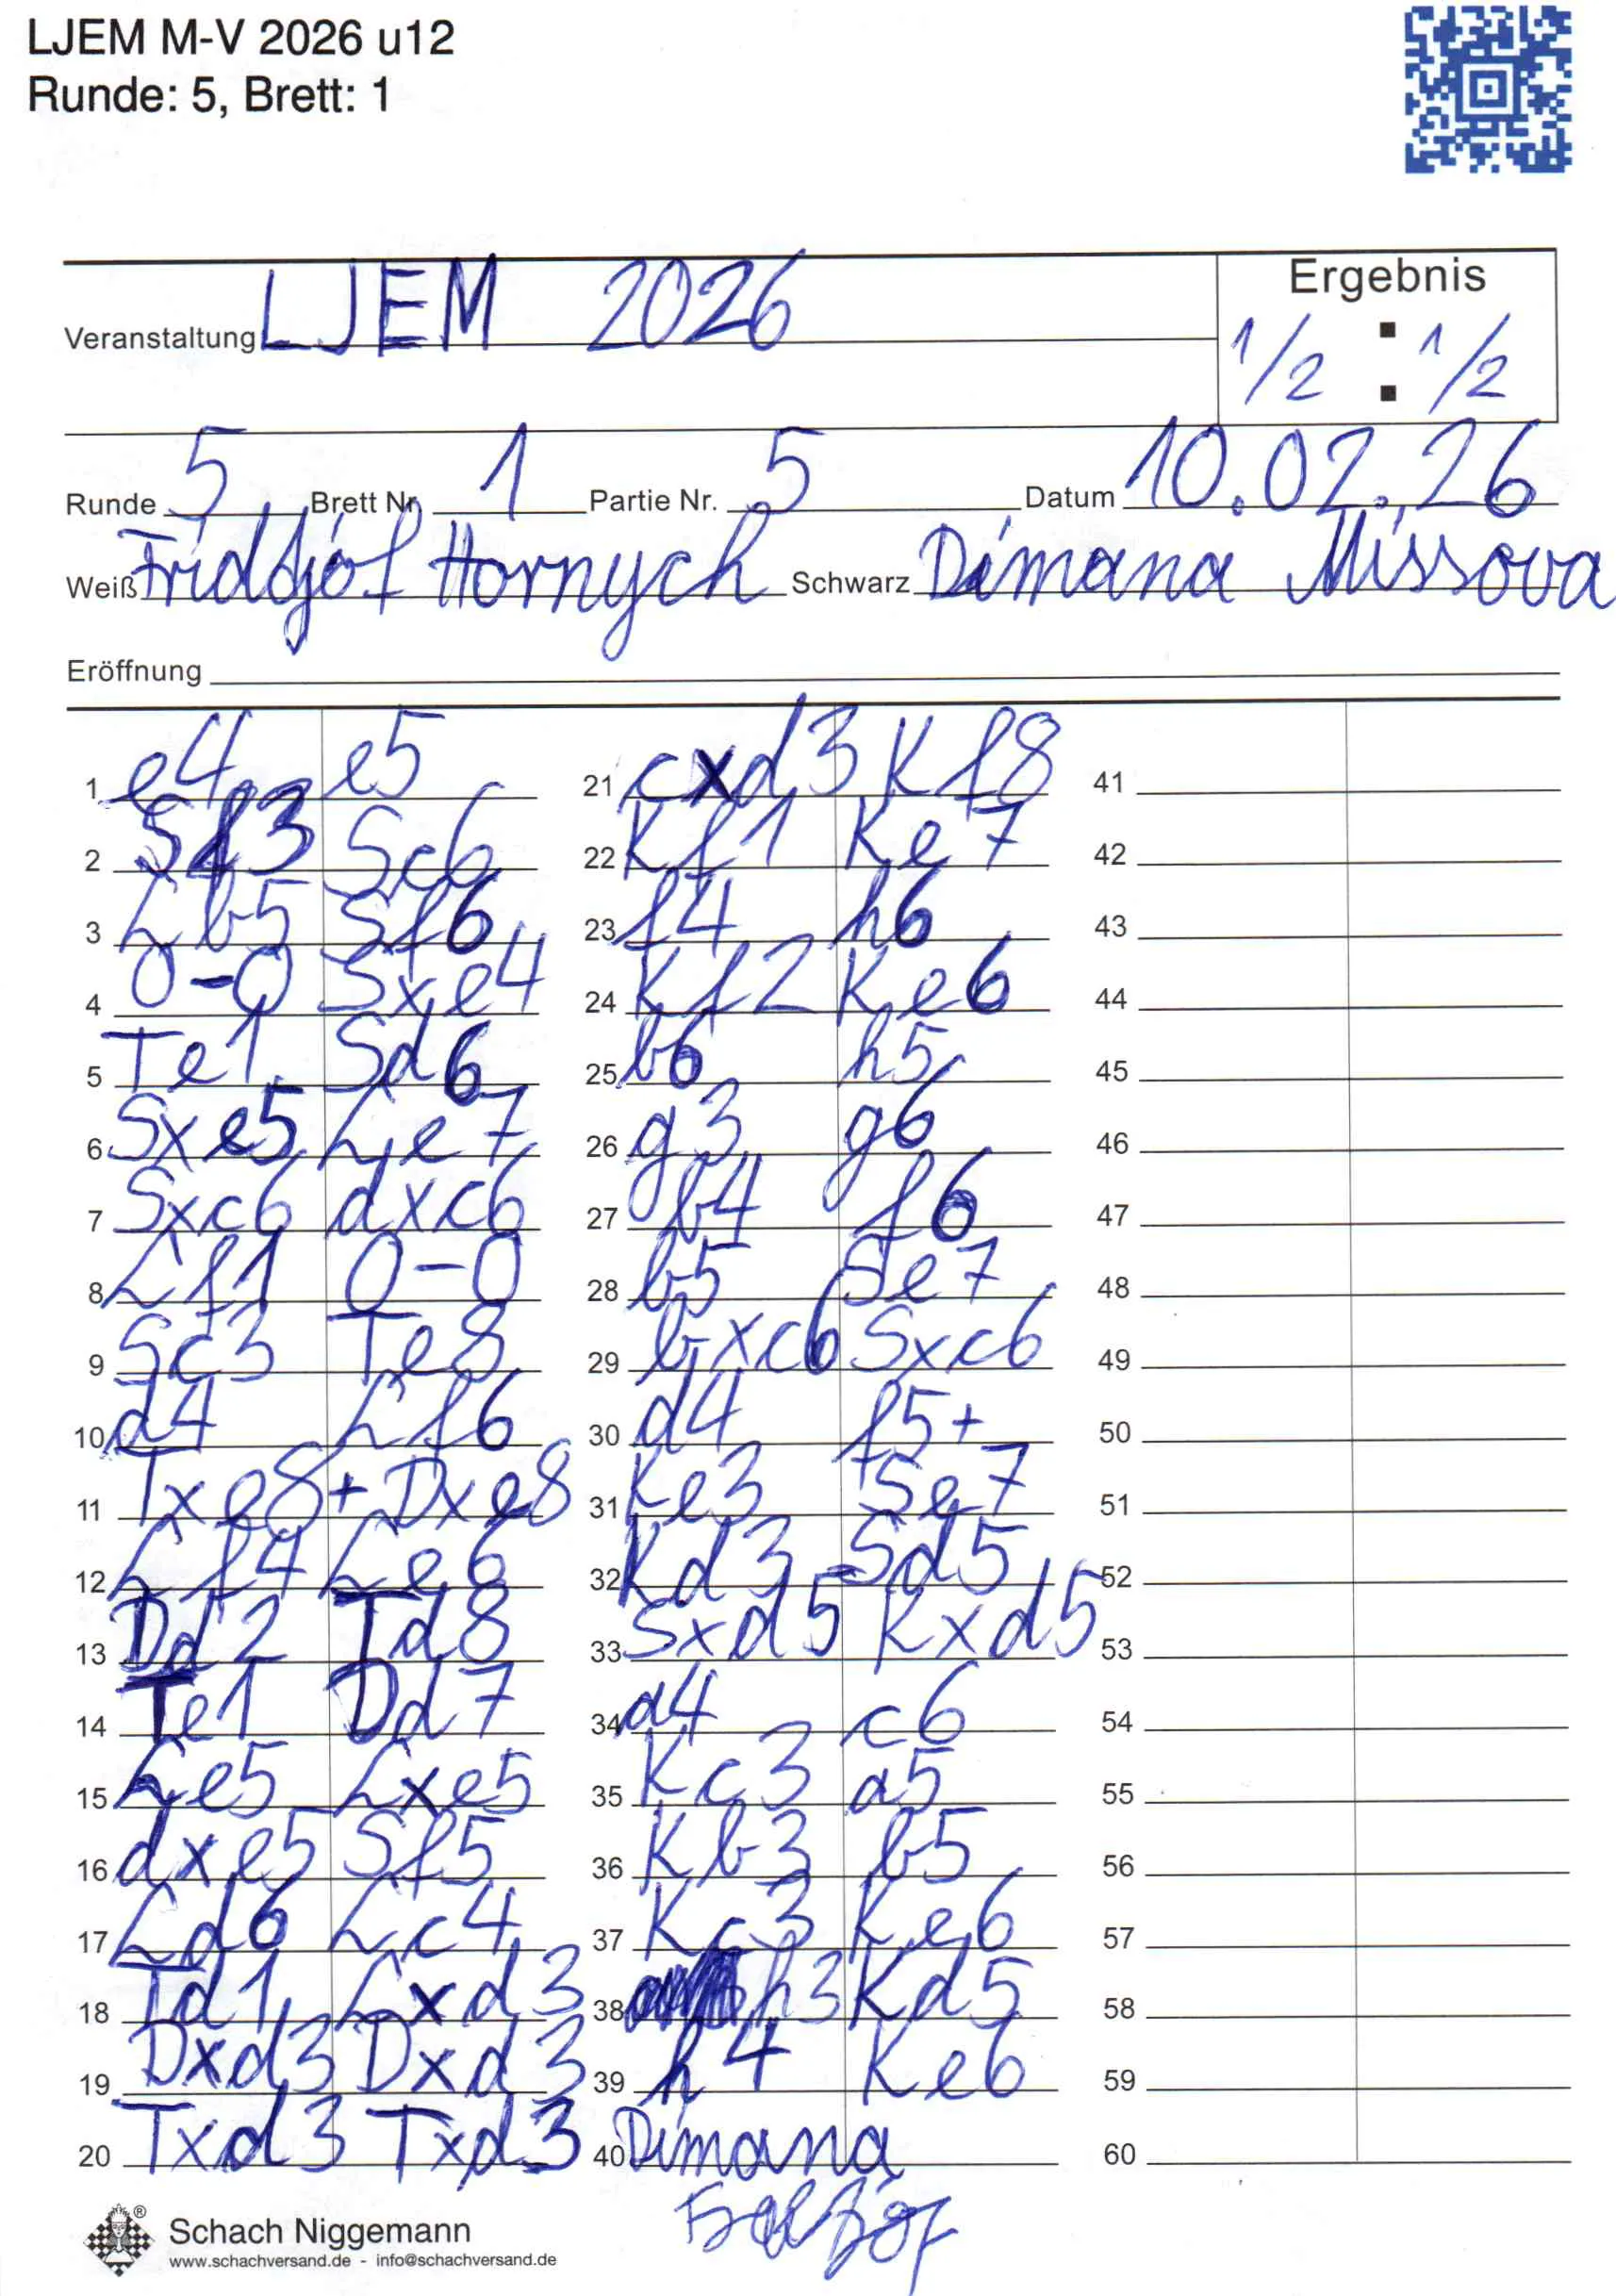 LJEM M-V 2026 u12
Runde: 5, Brett: 1
Ergebnis
Veranstaltung LJEM 2026
1/2 : 1/2
Runde 5 Brett Nr. 1 Partie Nr. 5 Datum 10.02.26
Weiß Fridtjof Hornych Schwarz Dimana Missova
Eröffnung
1 e4 e5
2 Sf3 Sc6
3 Lb5 Sf6
4 0-0 Sxe4
5 Te1 Sd6
6 Sxe5 Le7
7 Sxc6 dxc6
8 Lf1 0-0
9 Sc3 Te8
10 d4 Lf6
11 Txe8+ Dxe8
12 Lf4 Le6
13 Dd2 Td8
14 Te1 Dd7
15 Le5 Lxe5
16 dxe5 Sf5
17 Ld6 Lc4
18 Td1 Lxd3
19 Dxd3 Dxd3
20 Txd3 Txd3
21 cxd3 Kf8
22 Kf1 Ke7
23 f4 h6
24 Kf2 Ke6
25 b6 h5
26 g3 g6
27 b4 f6
28 b5 Se7
29 bxc6 Sxc6
30 d4 f5+
31 Ke3 Se7
32 Kd3 Sd5
33 Sxd5 Kxd5
34 a4 c6
35 Kc3 a5
36 Kb3 b5
37 Kc3 Ke6
38 h3 Kd5
39 h4 Ke6
40 Dimana
41
42
43
44
45
46
47
48
49
50
51
52
53
54
55
56
57
58
59
60
Schach Niggemann
www.schachversand.de - info@schachversand.de